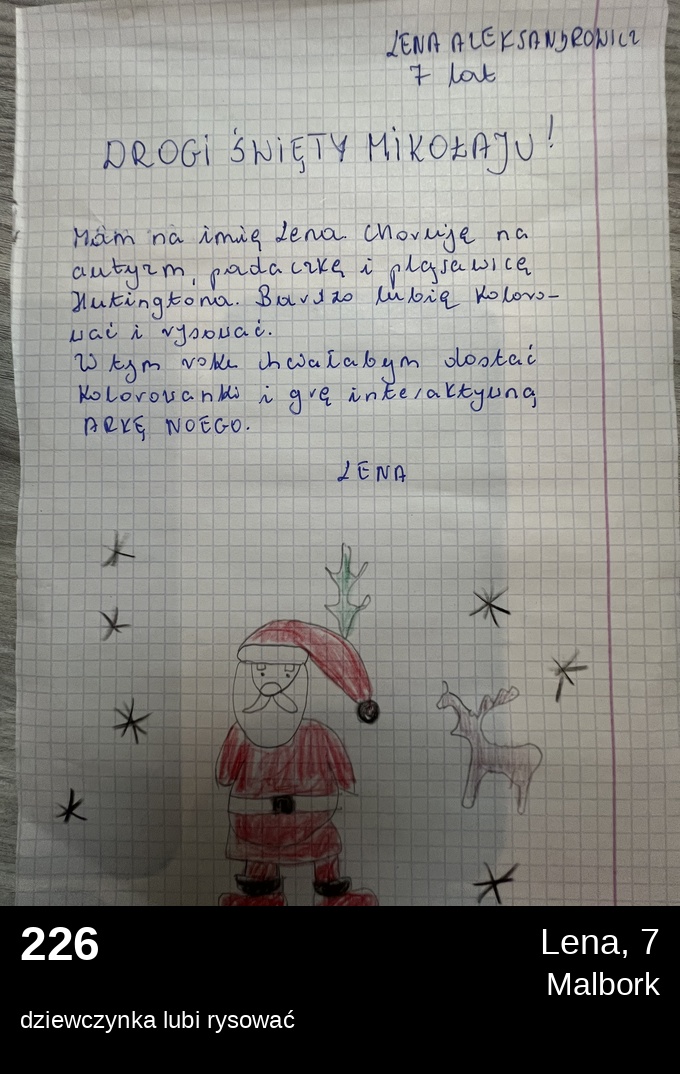 LENA ALEKSANDROWICZ
7 lat
DROGi ŚWiĘTY MiKOŁAJU!
Mam na imię Lena. Choruję na
autyzm, padaczkę i pląsawicę
Hutingtona. Bardzo lubię koloro-
wać i rysować.
W tym roku chwałabym dostać
kolorowanki i grę interaktywną
ARKĘ NOEGO.
LENA
226
Lena, 7
Malbork
dziewczynka lubi rysować